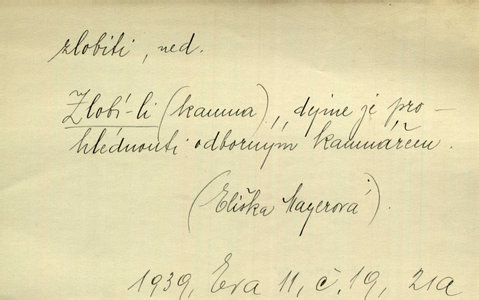 zlobiti, ned.
Zlobí-li (kamna), dejme je pro-
hlédnouti odborným kamnářem.
(Eliška Mayerová).
1939, Eva 11, č. 19, 21a